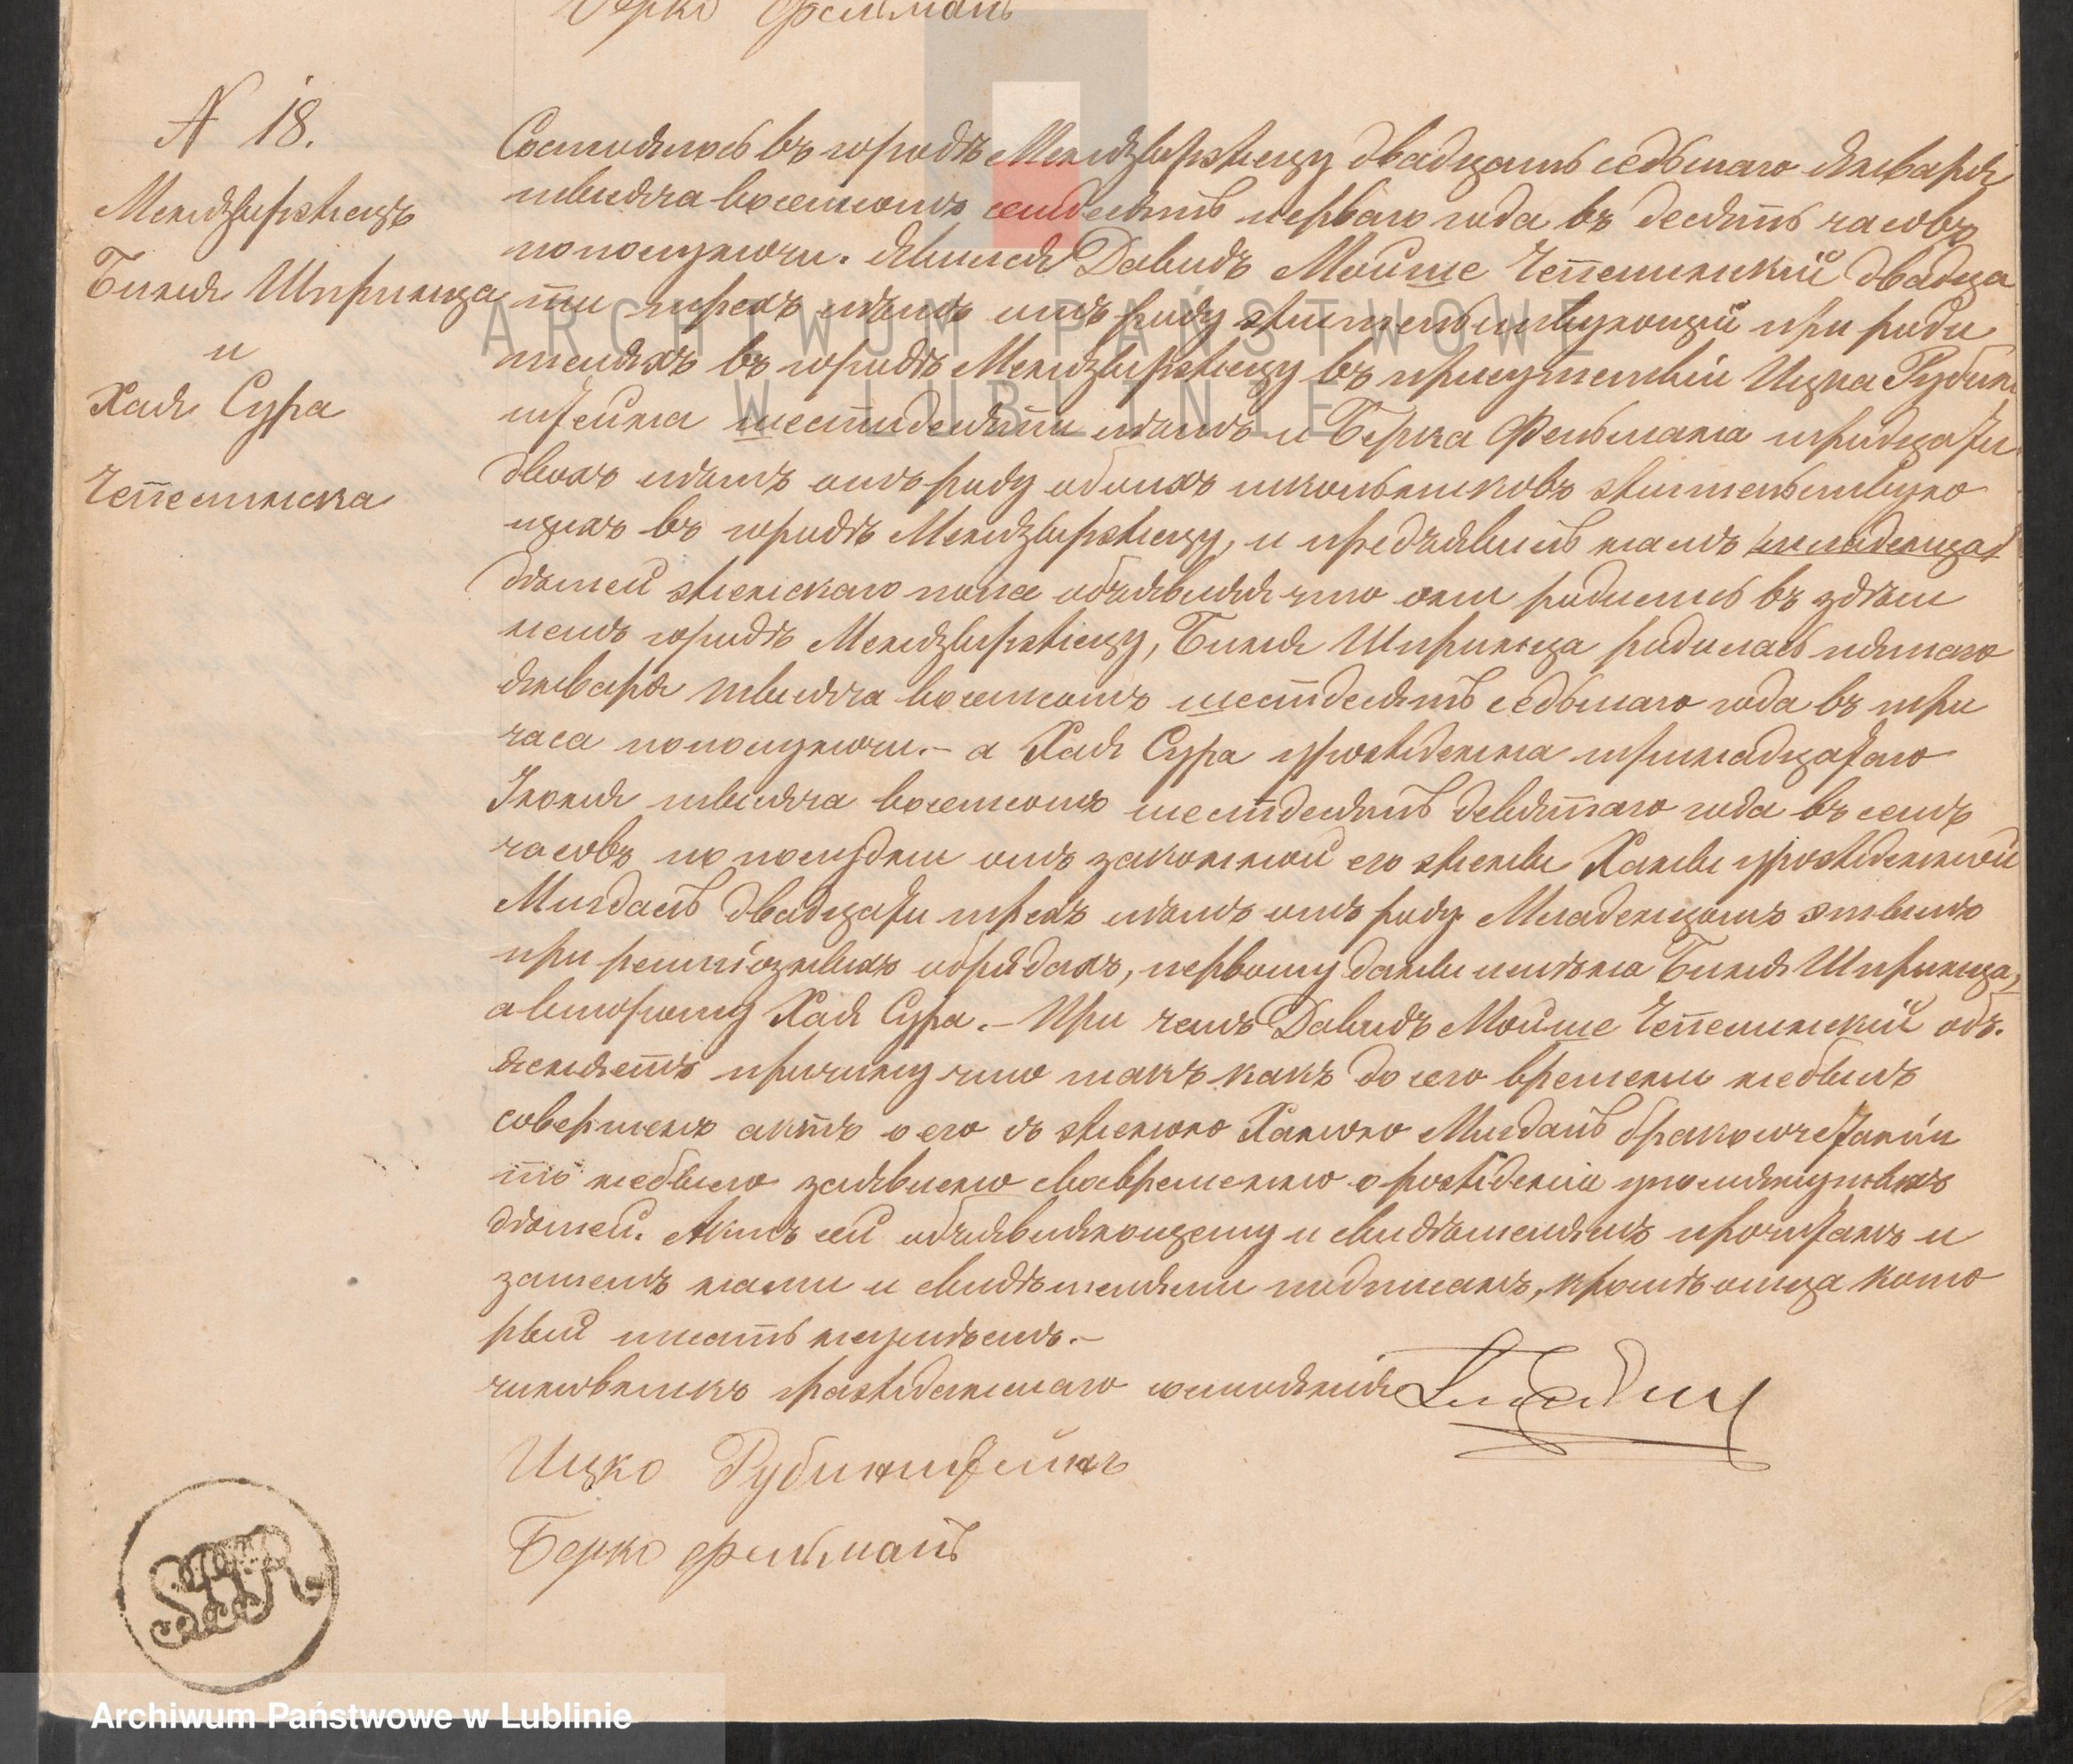 Берко Фельманъ
N 18.
Мендзыржецъ
Биня Шпринца
и
Хая Сура
Чеппелинска
Состоялось въ городѣ Мендзыржецу двадцать седьмаго Января
тысяча восемсотъ семдесятъ перваго года въ десять часовъ
пополуночи. Явился Давидъ Мойше Чеппелинскій двадца
ти трехъ лѣтъ отъ роду жительствующій при роди
теляхъ въ городѣ Мендзыржецу въ присутствіи Ицка Рубин
штейна шестидесяти лѣтъ и Берка Фельмана тридцати
двохъ лѣтъ отъ роду обоихъ школьниковъ жительствую
щихъ въ городѣ Мендзыржецу, и предъявилъ намъ младенца
дѣтей женскаго пола объявляя что они родились въ здѣш
немъ городѣ Мендзыржецу, Биня Шпринца родилась пятаго
января тысяча восемсотъ шестдесятъ седьмаго года въ три
часа пополуночи. – а Хая Сура урожденна тринадцатаго
Іюня тысяча восемсотъ шестдесятъ девятаго года въ семъ
часовъ по полудни отъ законной его жены Ханы урожденной
двадцати трехъ лѣтъ отъ роду. Младенцомъ этымъ
при религіозныхъ обрядахъ, первому даны имѣна Биня Шпринца,
а второму Хая Сура. – При чемъ Давидъ Мойше Чеппелинскій объ.
ясняетъ причину что такъ какъ до сего времени небылъ
совершенъ актъ о его съ женою Ханою бракосочетаніи
то небыло заявлено своевременно о рожденіи упомянутыхъ
дѣтей. Актъ сей объявляющему и свидѣтелямъ прочитанъ и
затемъ нами и свидѣтелями подписанъ, кромѣ отца кото
рый писать неумѣетъ. –
чиновникъ гражданскаго состоянія
Ицко Рубинштейнъ
Берко Фельманъ
ARCHIWUM PAŃSTWOWE
W LUBLINIE
Archiwum Państwowe w Lublinie